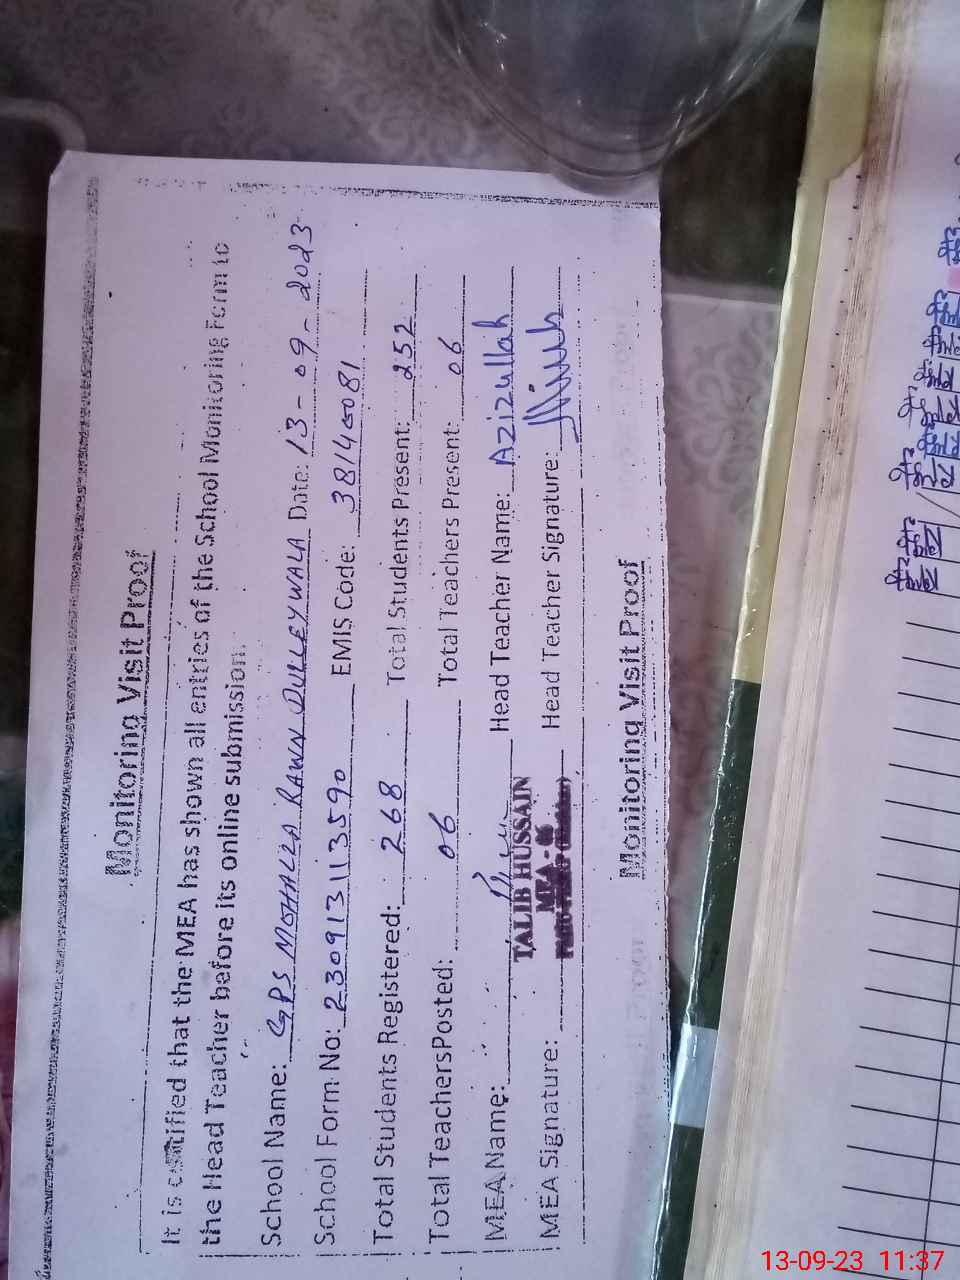 Monitoring Visit Proof
It is certified that the MEA has shown all entries of the School Monitoring Form to
the Head Teacher before its online submission.
School Name: GPS MOHALLA RAWN DULLEYWALA Date: 13-09-2023
School Form No: 2309131113590 EMIS Code: 38140081
Total Students Registered: 268 Total Students Present: 252
Total TeachersPosted: 06 Total Teachers Present: 06
MEA Name: Head Teacher Name: Azizullah
TALIB HUSSAIN
MEA-06
MEA Signature: Head Teacher Signature:
Monitoring Visit Proof
13-09-23 11:37